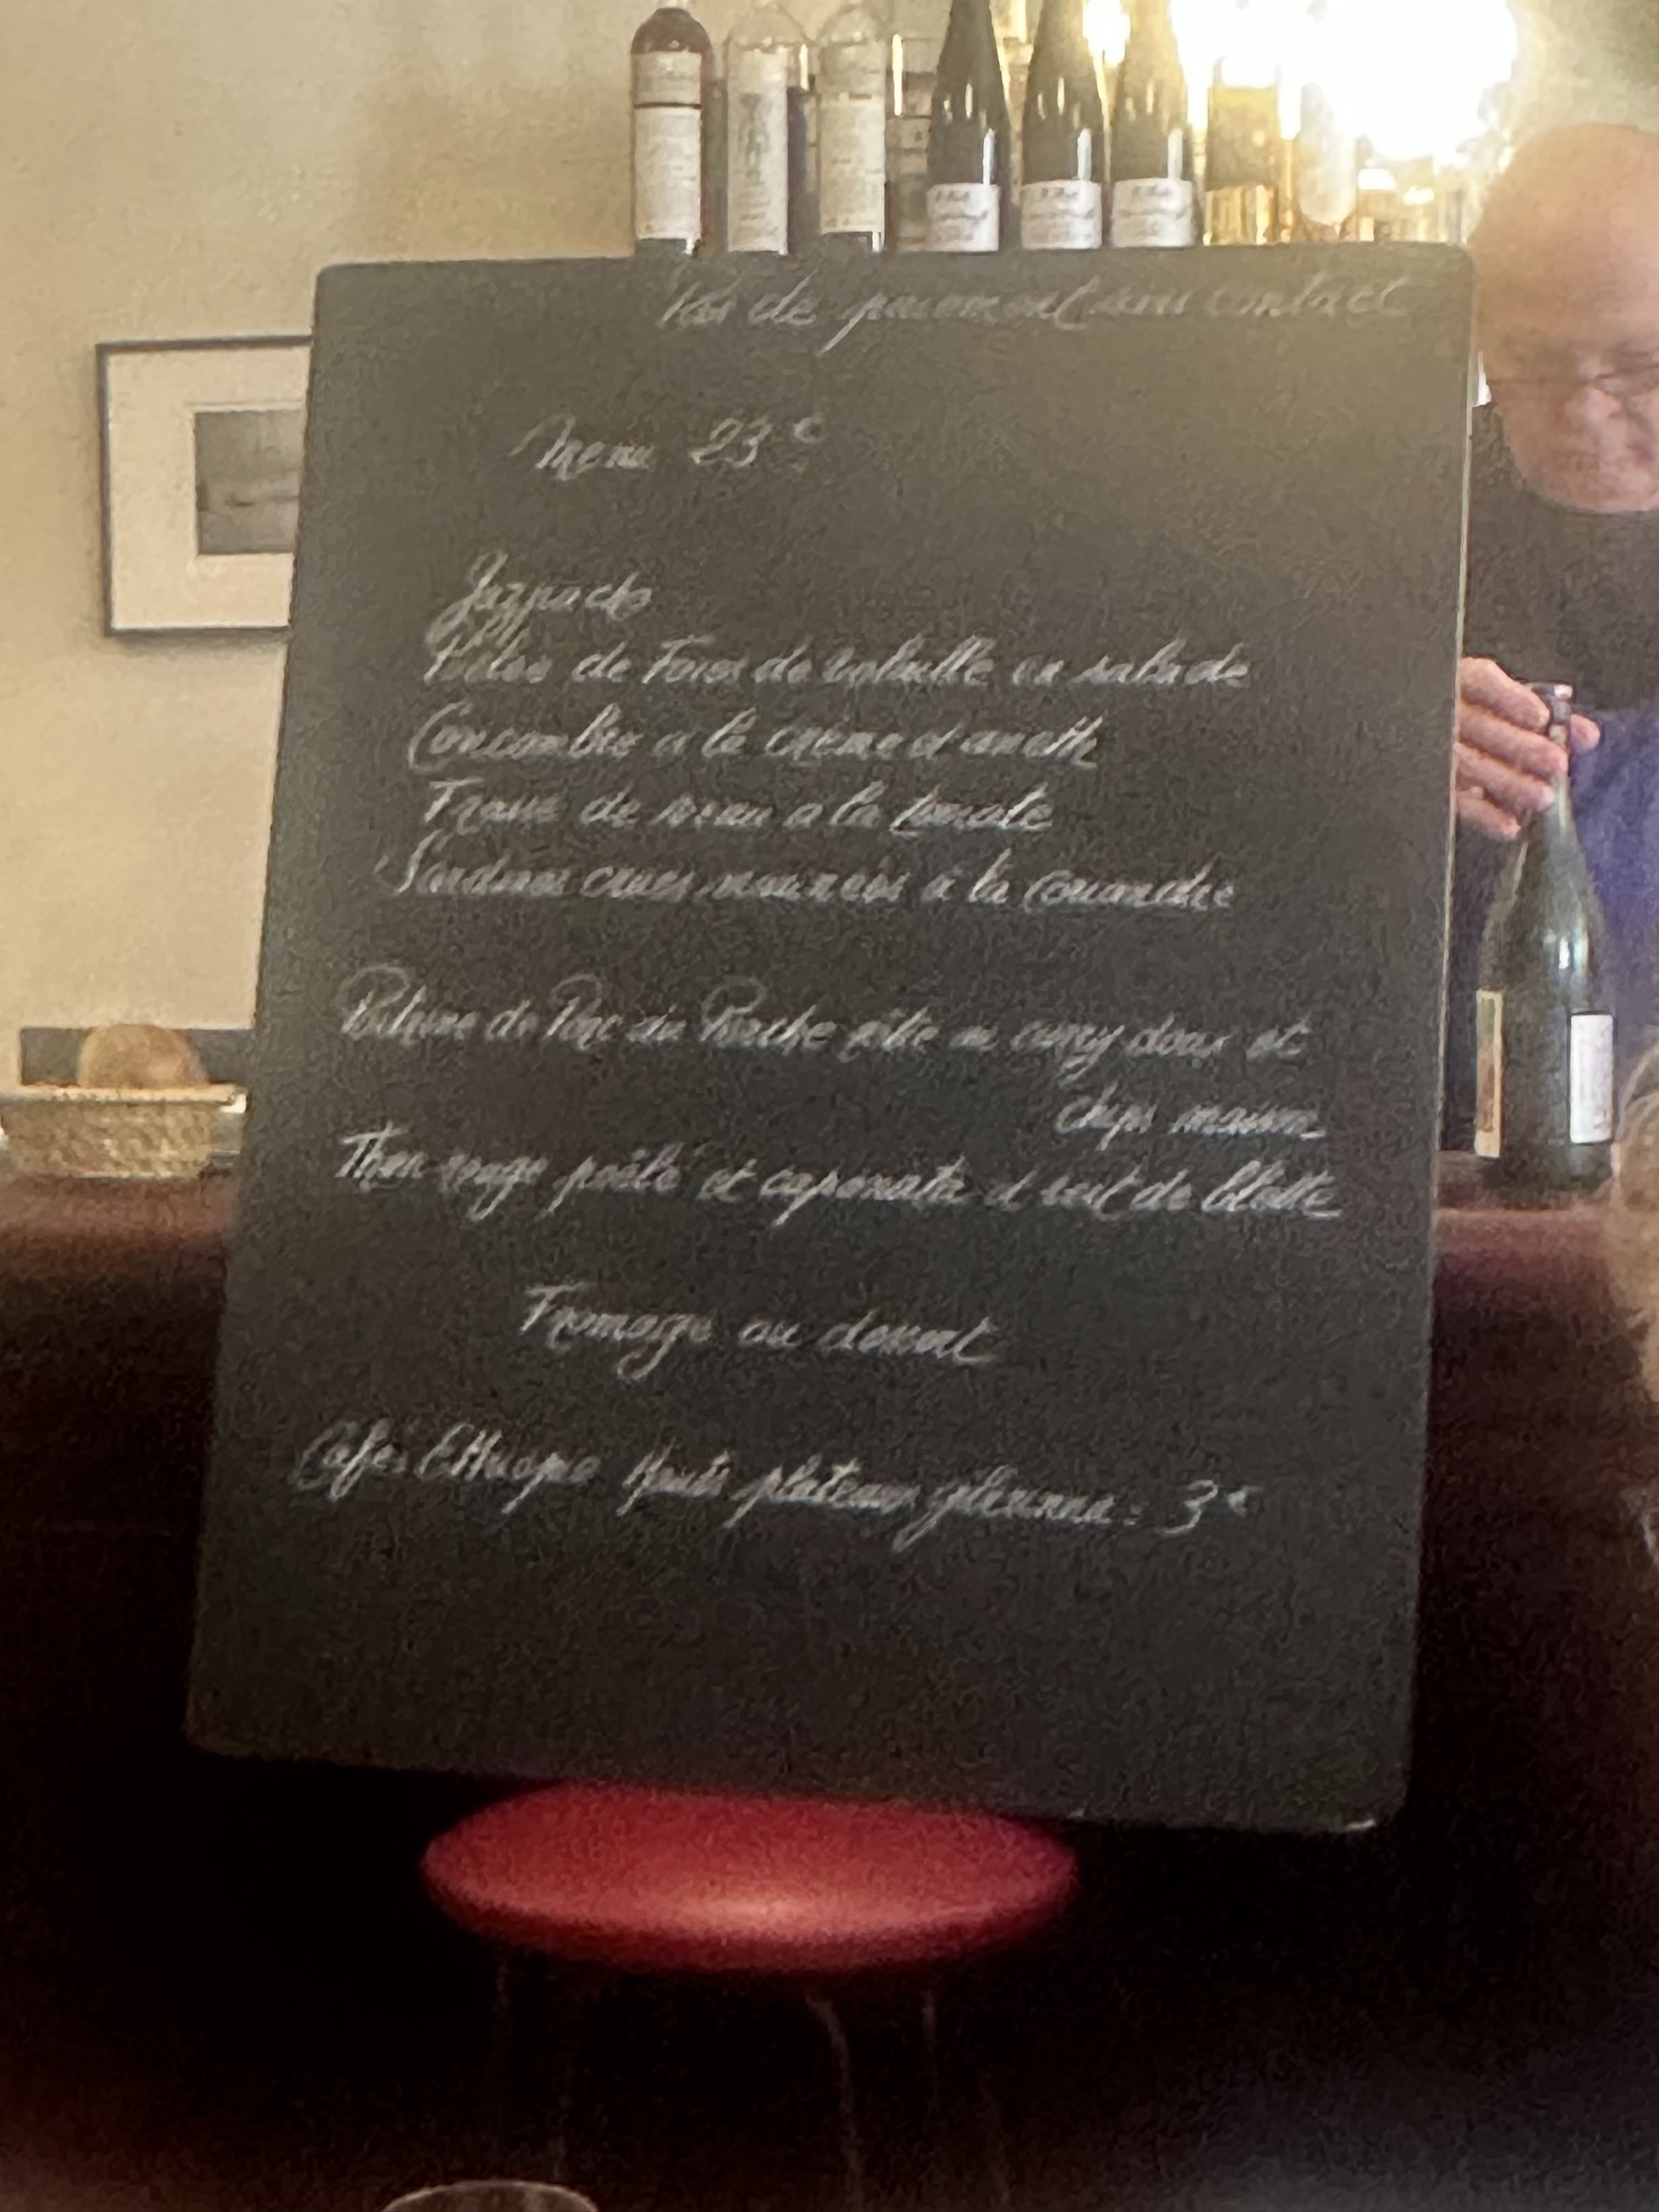 Pas de paiement sans contact
Menu 23€
Gazpacho
Poêlée de Foies de volaille en salade
Concombre à la crème d'aneth
Fraise de veau à la tomate
Sardines crues marinées à la coriandre
Poitrine de Porc du Perche rôtie au curry doux et
chips maison
Thon rouge poêlé et caponata et vert de blette
Fromage ou dessert
Cafés Ethiopie Hauts plateaux : 3€